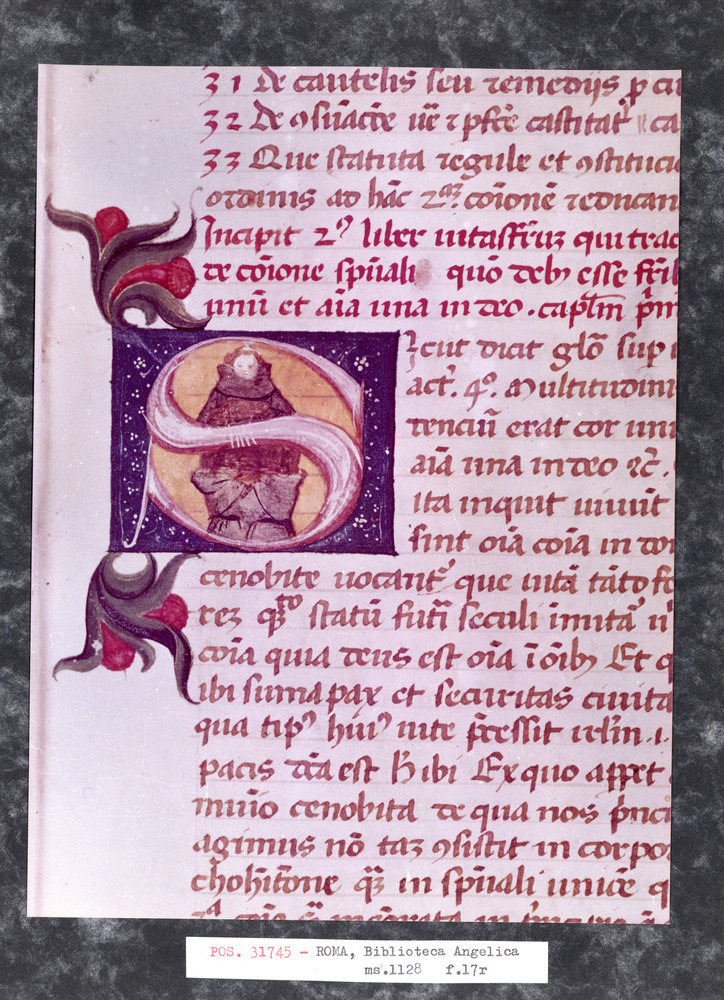 31 De cautelis seu remedijs ꝑ cu
32 De ꝯsũacõe ũe ⁊ pfc̃e castitat̃ ca
33 Que statuta regule et ꝯstitucio
ordinis ad hãc 2am cõionẽ reducan
Incipit 2ꝰ liber uitasfr̃uʒ qui trac
de cõione spũali quõ debꝫ esse fr̃ib
unũ et aĩa una in deo . capl̃m p̃m
Sicut dicit glõ sup
act̃. 4º. Multitudini
denciũ erat cor unu
aĩa una in deo ⁊c̃.
Ita inquit uiuũt
sint oĩa cõia in do
cenobite uocant̃ que uitã tãto fo
rez statũ futĩ seculi ĩmitã
cõia quia deus est oĩa ĩ oĩbꝫ Et q
ibi sũma pax et securitas ciuita
qua tipꝰ huiꝰ uite p̃cessit irl̃m .i.
pacis dc̃a est h̃ ibi Ex quo appet
cenobita de qua nos p̃nci
agimus nõ taʒ ꝯsistit in corpo
in spũali unice q
POS. 31745 - ROMA, Biblioteca Angelica
ms.1128 f.17r